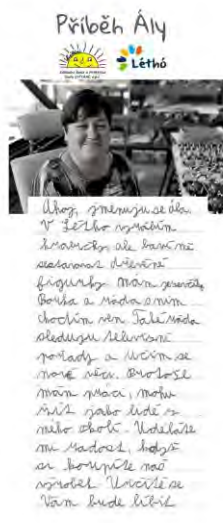 Příběh Ály
Léthó
Ahoj, jmenuju se Ála.
V Léthó vyrábím
krabičky, ale baví mě
sestavovat dřevěné
figurky. Mám pejsečka
Borka a ráda s ním
chodím ven. Také ráda
sleduju televizní
pořady a učím se
nové věci. Protože
mám práci, mohu
žít jako lidé z
mého okolí. Uděláte
mi radost, když
si koupíte náš
výrobek. Určitě se
Vám bude líbit